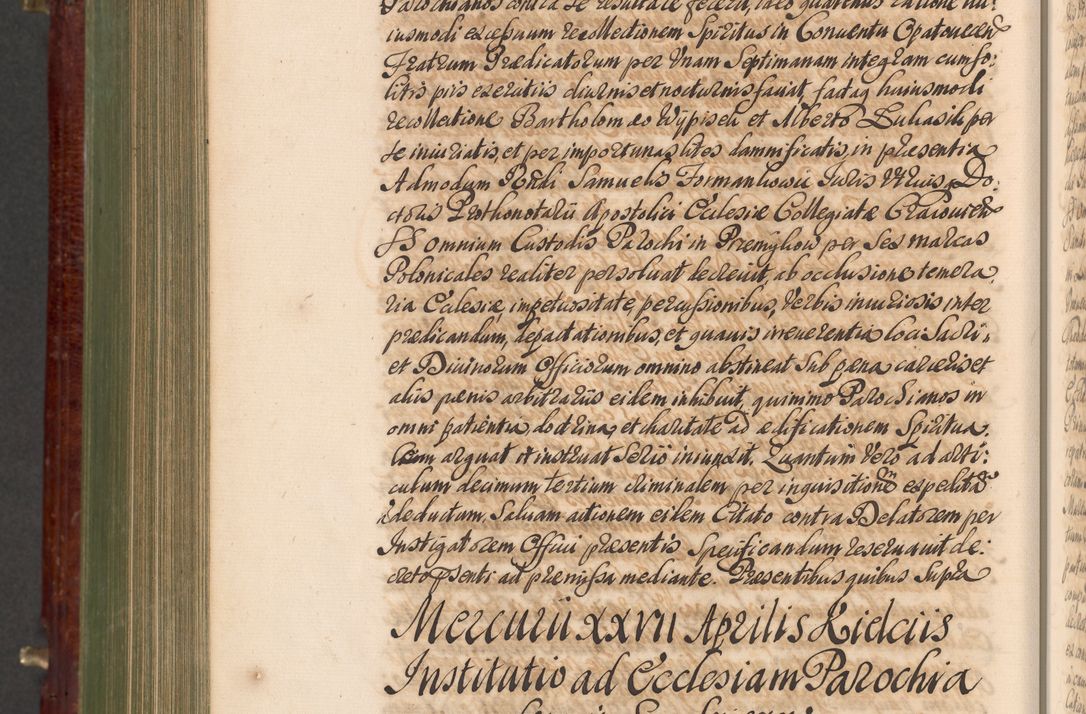 Parochianos contra se
iusmodi excessuum recollectionem Spiritus in Conventu Opatovien
Fratrum Prædicatorum per Vnam Septimanam integram cum so:
litis pijs exercitiis diurnis et nocturnis faciat, factaq huiusmodi
recollectione Bartholomæo Wypisch et Alberto Lukasik per
se iniuriatis, et per importunas lites damnificatis, in præsentia
Admodum Rndi Samuelis Formankowic Iuris Vtrius Do,
ctoris Prothonotarii Apostolici Ecclesiæ Collegiatæ Cracovien
SS omnium Custodis Parochi in Przemykow per Sex marcas
Polonicales realiter persoluat decreuit, ab occlusione temera,
ria Ecclesiæ, impetuositate, percussionibus, Verbis iniuriosis inter
prædicandum, depactationibus, et quauis irreuerentia loci Sacri,
et Diuinorum Officiorum omnino abstineat Sub pæna carceris et
aliis pænis arbitrariis eidem inhibuit, quinimo Parochianos in
omni patientia, doctrina, et charitate ad ædificationem Spiritua,
lem arguat et instruat Serio iniunxit. Quantum Vero ad arti:
culum decimum tertium criminalem per inquisitionem expeditæ
deductum, Saluam actionem eidem Citato contra Delatorem per
Instigatorem Officii præsentis Specificandum reseruauit de:
creto psenti ad præmissa mediante. Præsentibus quibus Supra
Mercurii XXVII Aprilis Kielciis
Institutio ad Ecclesiam Parochia